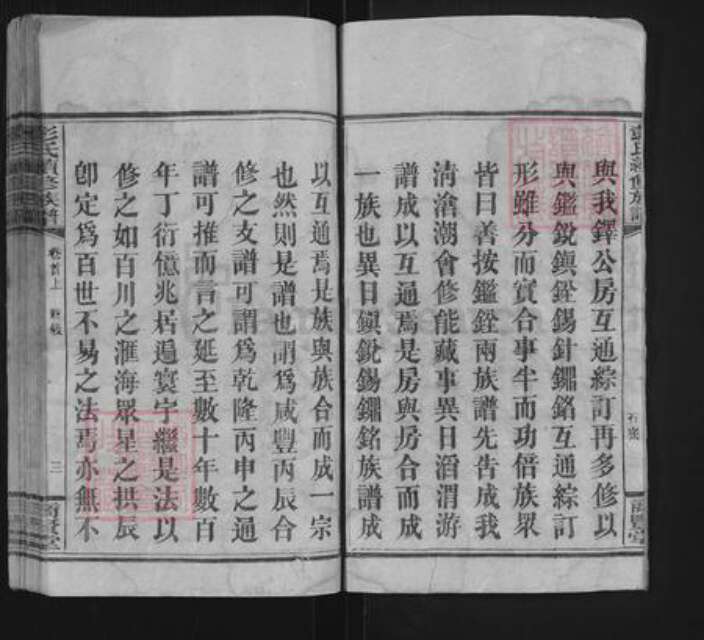 與我鐸公房互通綜訂再多修以
與鑑銳鎮銓錫針鐲銘互通綜訂
形雖分而實合事半而功倍族眾
皆曰善按鑑銓兩族譜先告成我
清滄潮會修能蕆事異日滔渭游
譜成以互通焉是房與房合而成
一族也異日鎮銳錫鐲銘族譜成
以互通焉是族與族合而成一宗
也然則是譜也謂爲咸豐丙辰合
修之支譜可謂爲乾隆丙申之通
譜可推而言之延至數十年數百
年丁衍億兆居遍寰宇繼是法以
修之如百川之滙海眾星之拱辰
卽定爲百世不易之法焉亦無不
彭氏續修族譜
卷首上
三